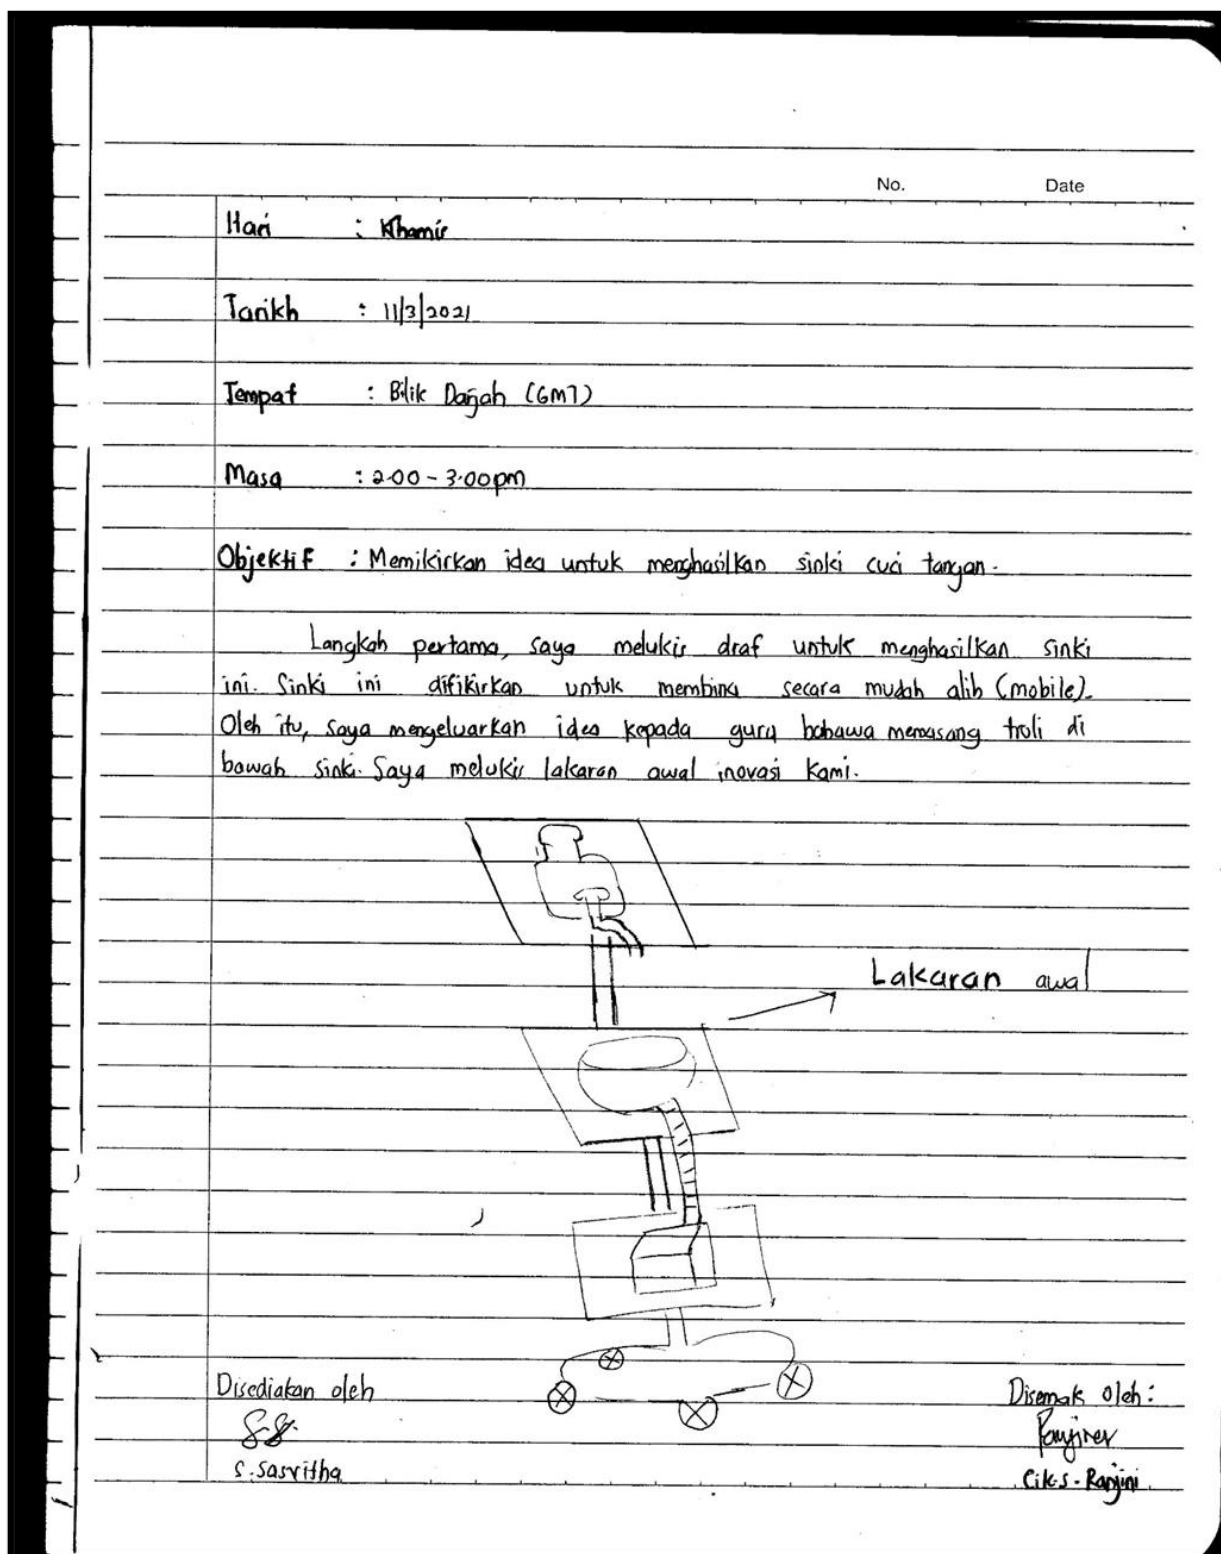 No. Date
Hari : Khamis
Tarikh : 11/3/2021
Tempat : Bilik Darjah (6M7)
Masa : 2.00 - 3.00pm
Objektif : Memikirkan idea untuk menghasilkan sinki cuci tangan.
Langkah pertama, saya melukis draf untuk menghasilkan sinki
ini. Sinki ini difikirkan untuk membina secara mudah alih (mobile).
Oleh itu, saya mengeluarkan idea kepada guru bahawa memasang troli di
bawah sinki. Saya melukis lakaran awal inovasi kami.
Lakaran awal
Disediakan oleh
S. Sasvitha
Disemak oleh:
Cik.S. Ranjini